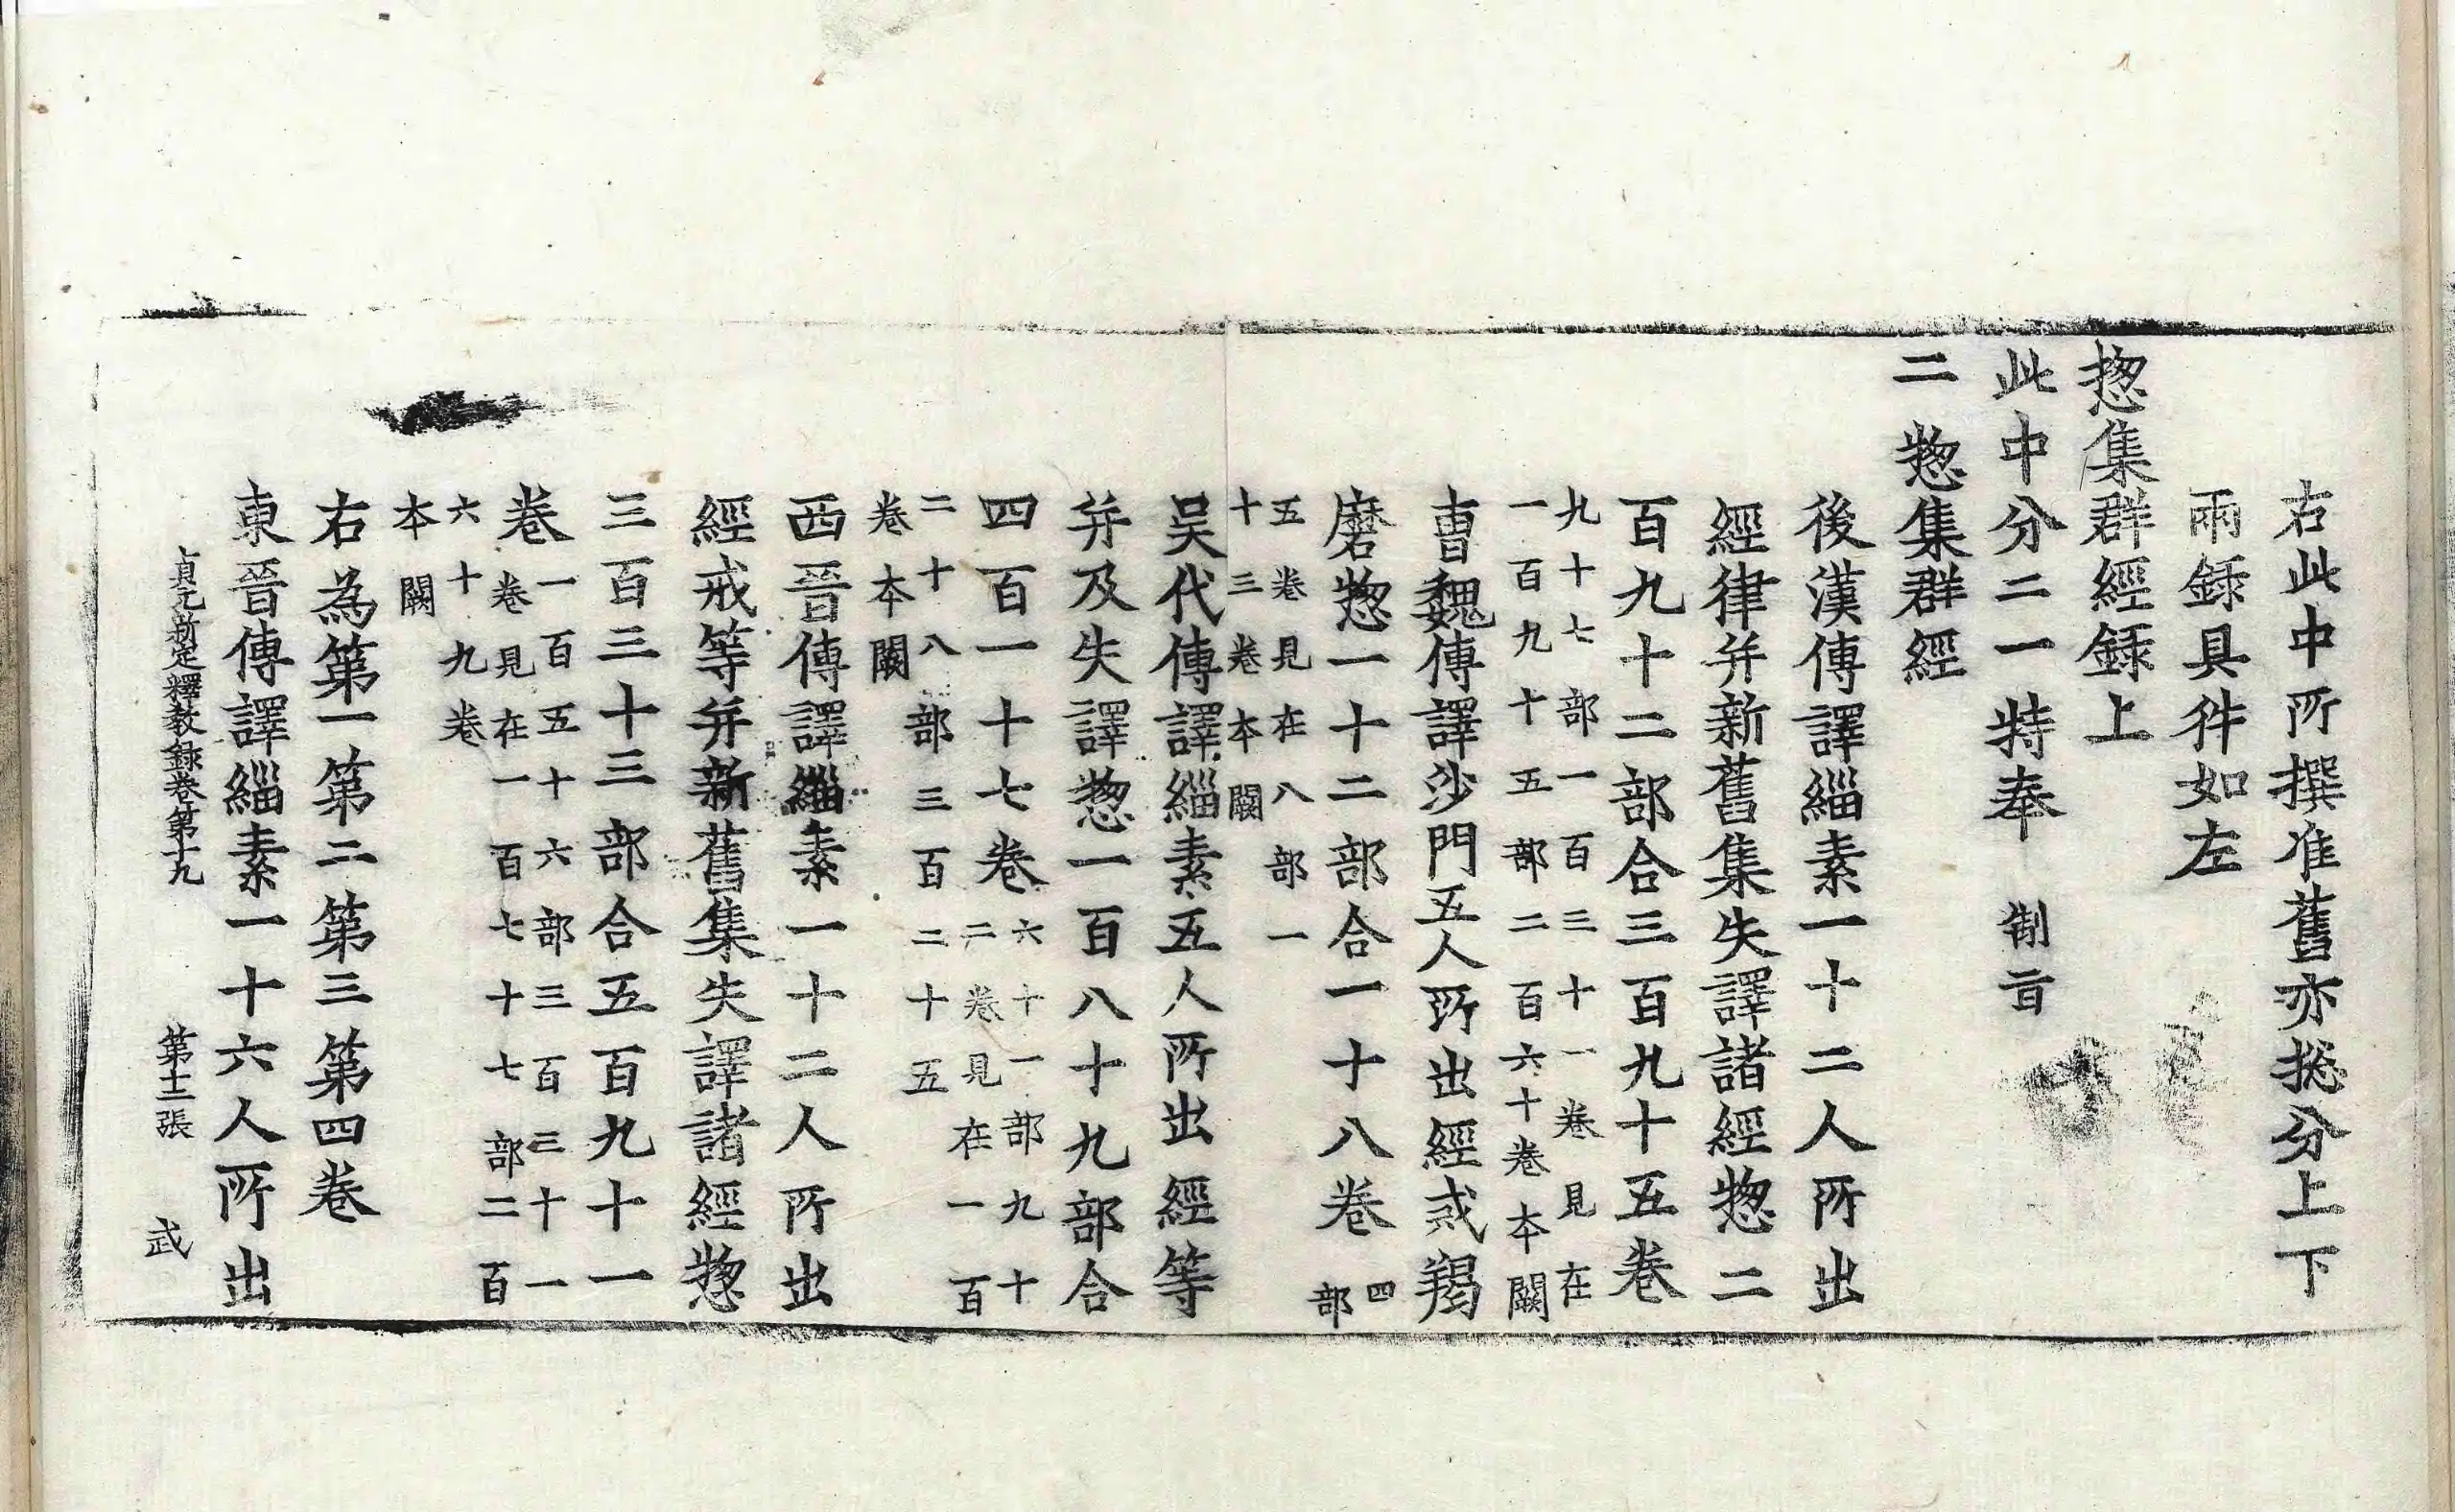 右此中所撰准舊亦揔分上下
兩録具件如左
揔集群經録上
此中分二一特奉　制旨
二惣集群經
後漢傳譯緇素一十二人所出
經律并新舊集失譯諸經惣二
百九十二部合三百九十五巻
九十七部一百三十一巻見在
一百九十五部二百六十巻本闕
曺魏傳譯沙門五人所出經戒羯
磨惣一十二部合一十八巻 四
部
五巻見在八部一
十三巻本闕
吴代傳譯緇素五人所出經等
并及失譯惣一百八十九部合
四百一十七巻 六十一部九十
二巻見在一百
二十八部三百二十五
巻本闕
西晉傳譯緇素一十二人所出
經戒等并新舊集失譯諸經惣
三百三十三部合五百九十一
巻 一百五十六部三百三十一
巻見在一百七十七部二百
六十九巻
本闕
右為第一第二第三第四巻
東晉傳譯緇素一十六人所出
貞元新定釋教録巻第十九　第十二張　武